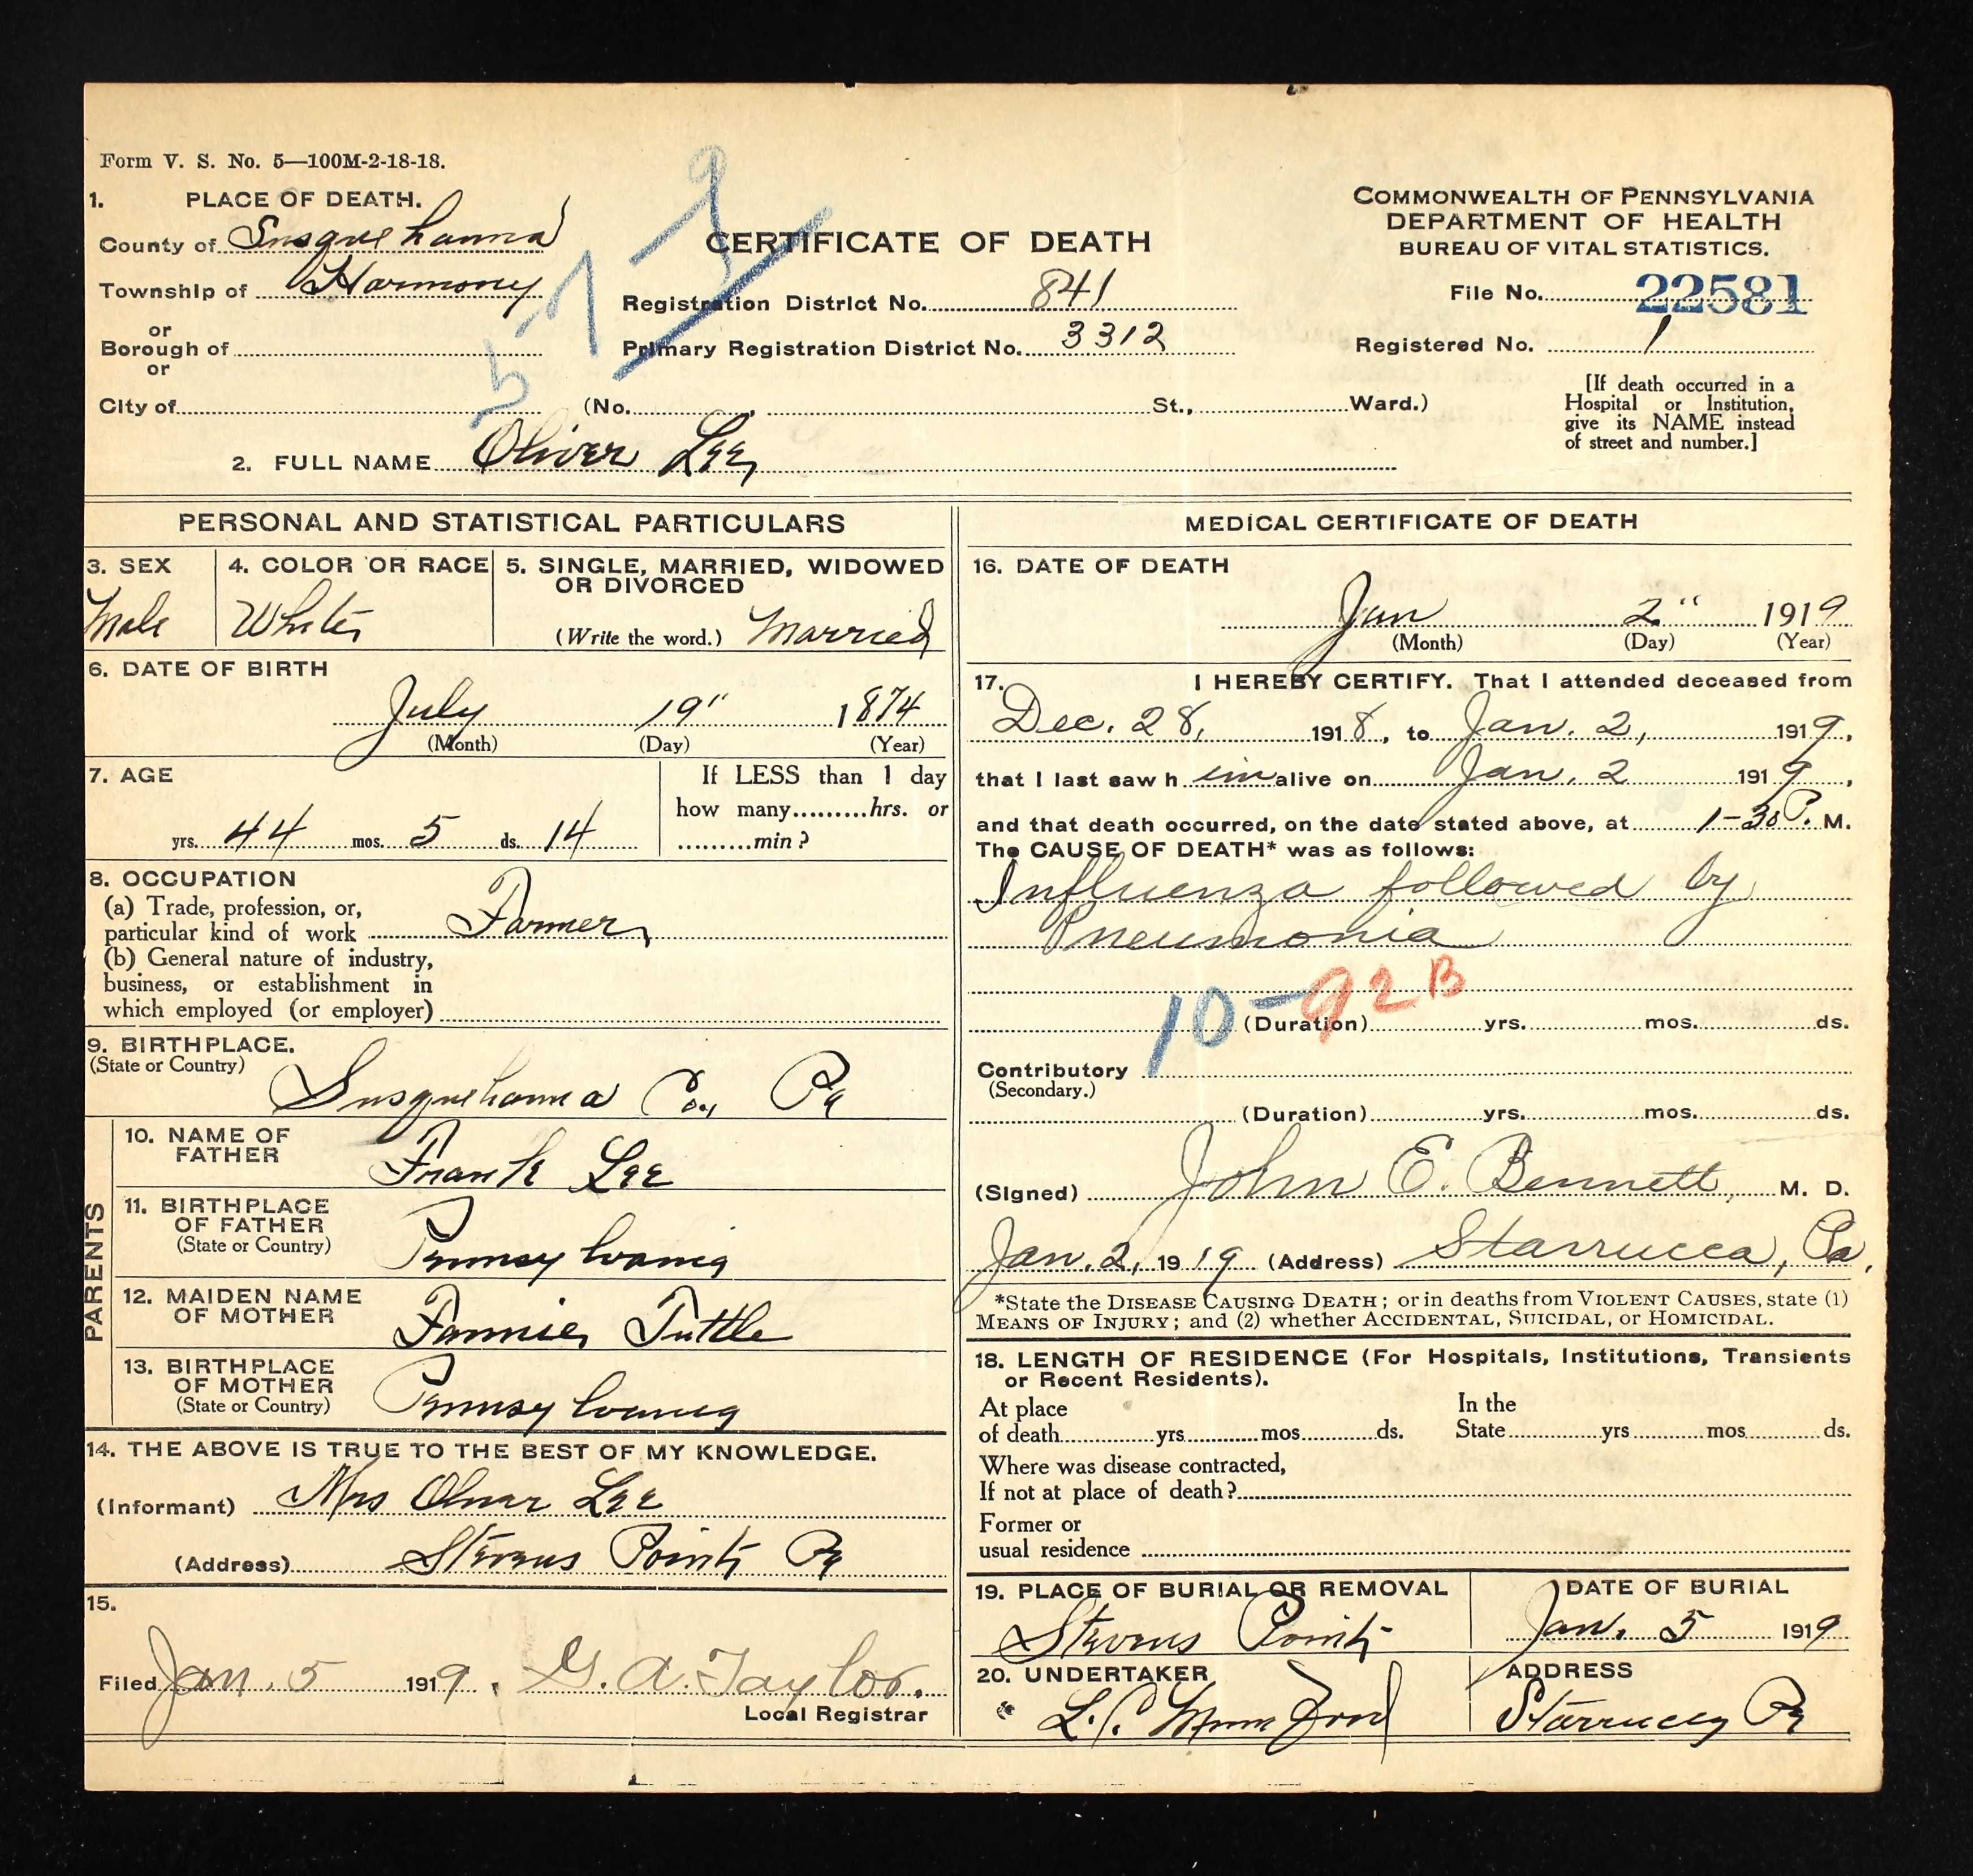 Form V. S. No. 5—100M-2-18-18.
1. PLACE OF DEATH.
County of Susquehanna
Township of Harmony
or
Borough of
or
City of (No. , St., Ward.)
CERTIFICATE OF DEATH
Registration District No. 841
Primary Registration District No. 3312
COMMONWEALTH OF PENNSYLVANIA
DEPARTMENT OF HEALTH
BUREAU OF VITAL STATISTICS.
File No. 22581
Registered No. 1
[If death occurred in a
Hospital or Institution,
give its NAME instead
of street and number.]
2. FULL NAME Oliver Lee
PERSONAL AND STATISTICAL PARTICULARS
3. SEX
Male
4. COLOR OR RACE
White
5. SINGLE, MARRIED, WIDOWED
OR DIVORCED
(Write the word.) Married
6. DATE OF BIRTH
July 19" 1874
(Month) (Day) (Year)
7. AGE
yrs. 44 mos. 5 ds. 14
If LESS than 1 day
how many.........hrs. or
.........min?
8. OCCUPATION
(a) Trade, profession, or,
particular kind of work Farmer
(b) General nature of industry,
business, or establishment in
which employed (or employer)
9. BIRTHPLACE.
(State or Country)
Susquehanna Co., Pa
PARENTS
10. NAME OF
FATHER
Frank Lee
11. BIRTHPLACE
OF FATHER
(State or Country)
Pennsylvania
12. MAIDEN NAME
OF MOTHER
Fannie Tuttle
13. BIRTHPLACE
OF MOTHER
(State or Country)
Pennsylvania
14. THE ABOVE IS TRUE TO THE BEST OF MY KNOWLEDGE.
(Informant) Mrs Oliver Lee
(Address) Stevens Point Pa
15.
Filed Jan. 5 1919. G. A. Taylor.
Local Registrar
MEDICAL CERTIFICATE OF DEATH
16. DATE OF DEATH
Jan 2" 1919
(Month) (Day) (Year)
17. I HEREBY CERTIFY. That I attended deceased from
Dec. 28, 1918, to Jan. 2, 1919,
that I last saw h im alive on Jan. 2 1919,
and that death occurred, on the date stated above, at 1-30 P. M.
The CAUSE OF DEATH* was as follows:
Influenza followed by
Pneumonia
10-92B
(Duration) yrs. mos. ds.
Contributory
(Secondary.)
(Duration) yrs. mos. ds.
(Signed) John E. Bennett, M. D.
Jan. 2, 1919 (Address) Starrucca, Pa.
*State the DISEASE CAUSING DEATH; or in deaths from VIOLENT CAUSES, state (1)
MEANS OF INJURY; and (2) whether ACCIDENTAL, SUICIDAL, or HOMICIDAL.
18. LENGTH OF RESIDENCE (For Hospitals, Institutions, Transients
or Recent Residents).
At place
of death yrs mos ds.
In the
State yrs mos ds.
Where was disease contracted,
If not at place of death?
Former or
usual residence
19. PLACE OF BURIAL OR REMOVAL
Stevens Point
DATE OF BURIAL
Jan. 5 1919
20. UNDERTAKER
L. P. Mumford
ADDRESS
Starrucca Pa